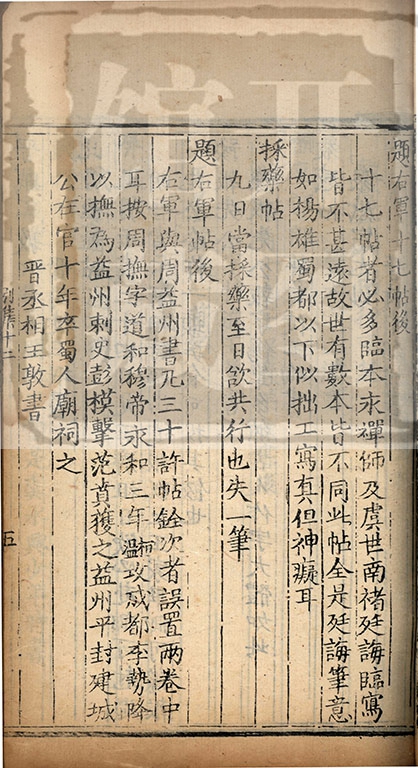 題右軍十七帖後
十七帖者必多臨本永禪師及虞世南禇廷誨臨寫
皆不甚遠故世有數本皆不同此帖全是廷誨筆意
如揚雄蜀都以下似拙工寫真但神癡耳
採藥帖
九日當採藥至日欲共行也失一筆
題右軍帖後
右軍與周益州書凡三十許帖銓次者誤置兩卷中
耳按周撫字道和穆帝永和三年桓溫攻成都李勢降
以撫為益州刺史彭模擊范賁獲之益州平封建城
公在官十年卒蜀人廟祠之
晋丞相王敦書
別集十二
五